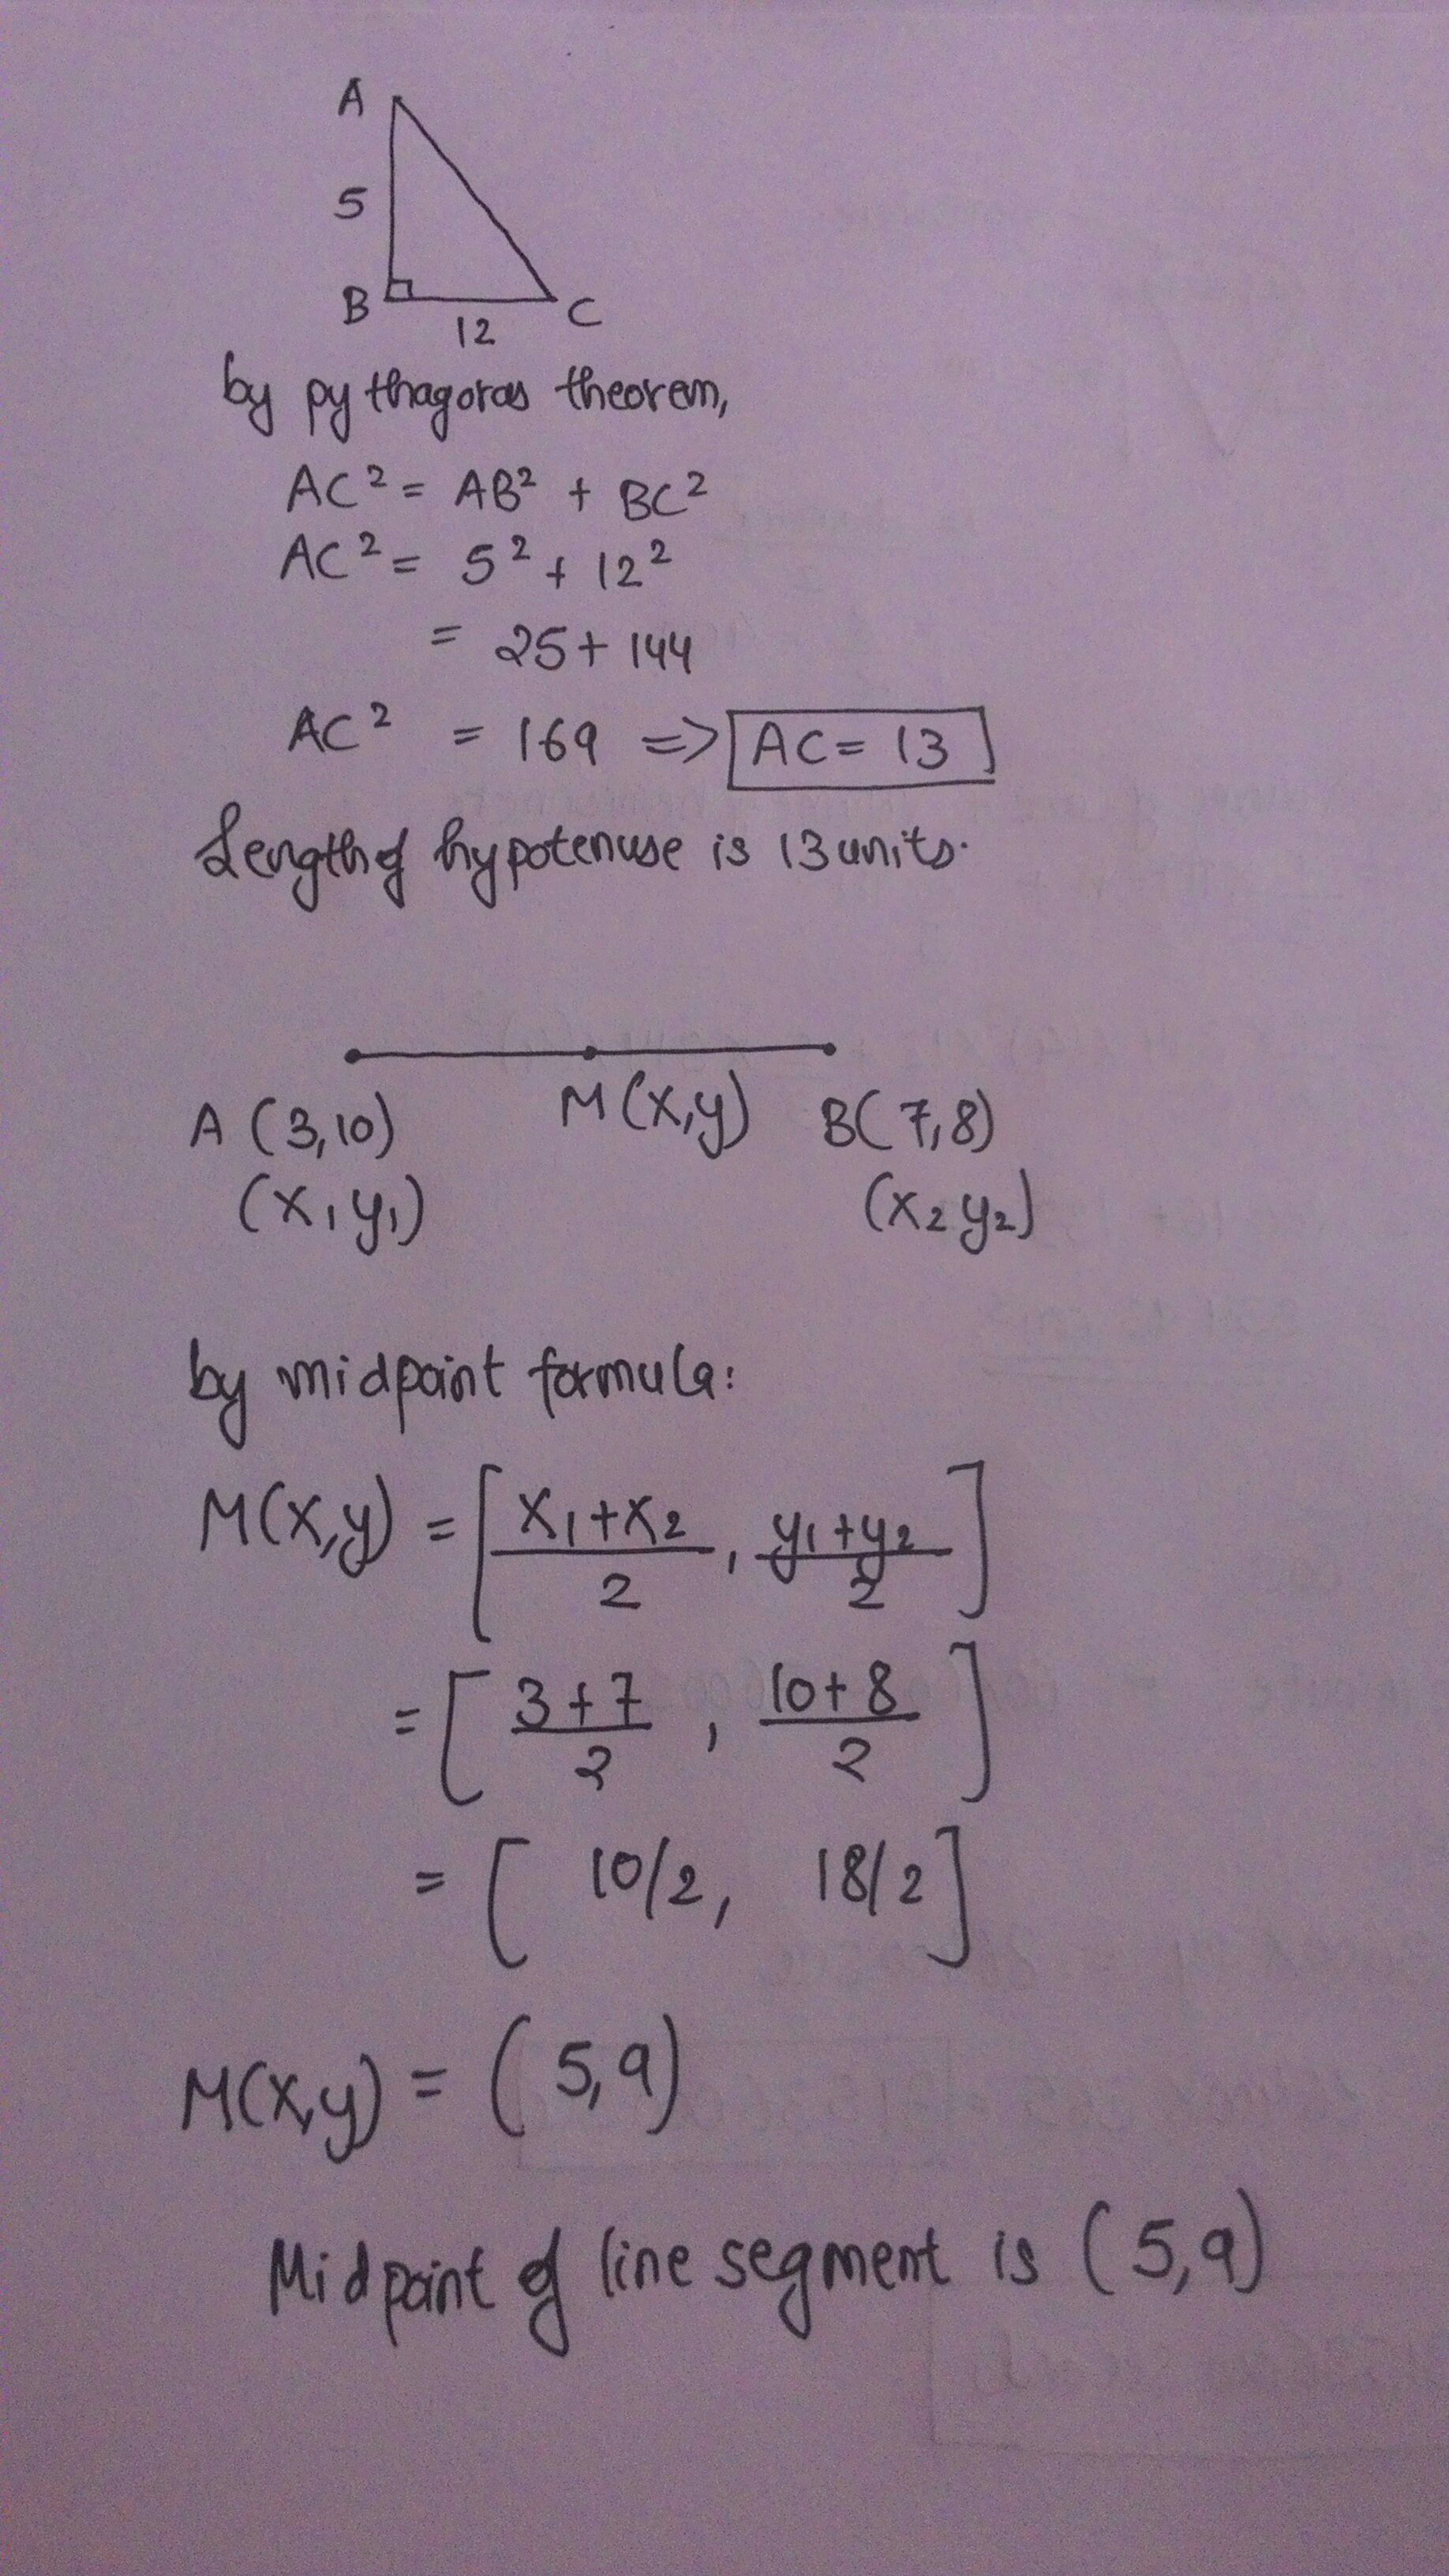 A
5
B
12
C
by pythagoras theorem,
AC² = AB² + BC²
AC² = 5² + 12²
= 25 + 144
AC² = 169 => AC = 13
Length of hypotenuse is 13 units.
A (3,10) M(x,y) B(7,8)
(x₁ y₁) (x₂ y₂)
by midpoint formula:
M(x,y) = [ x₁+x₂/2 , y₁+y₂/2 ]
= [ 3+7/2 , 10+8/2 ]
= [ 10/2, 18/2 ]
M(x,y) = (5,9)
Midpoint of line segment is (5,9)